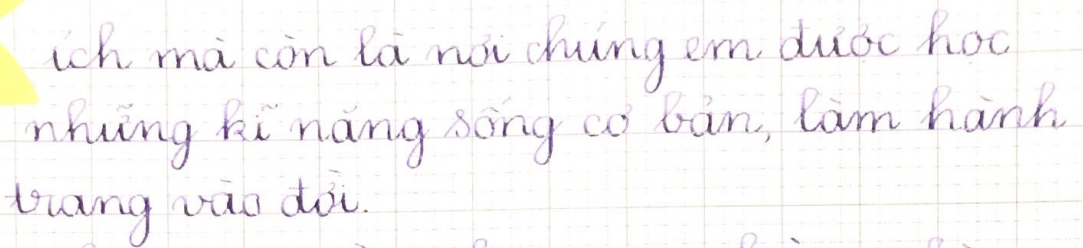 ích mà còn là nơi chúng em được học
những kĩ năng sống cơ bản, làm hành
trang vào đời.